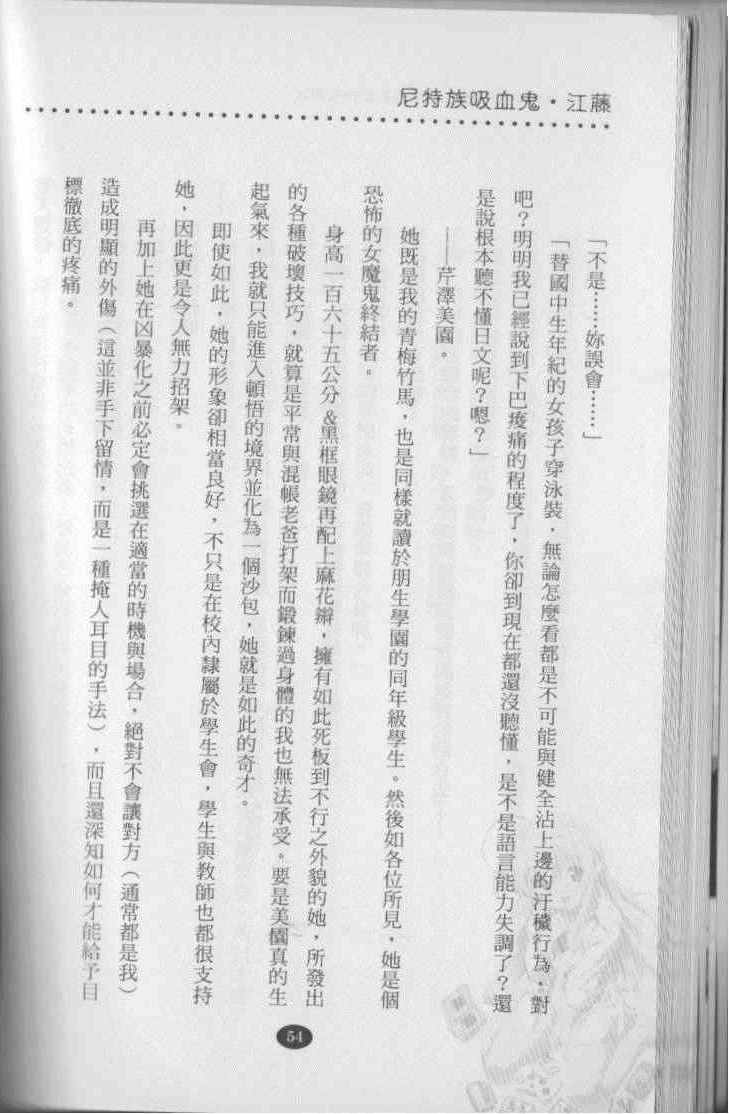 尼特族吸血鬼・江藤
「不是……妳誤會……」
「替國中生年紀的女孩子穿泳裝，無論怎麼看都是不可能與健全沾上邊的汙穢行為，對
吧？明明我已經說到下巴痠痛的程度了，你卻到現在都還沒聽懂，是不是語言能力失調了？還
是說根本聽不懂日文呢？嗯？」
——芹澤美園。
她既是我的青梅竹馬，也是同樣就讀於朋生學園的同年級學生。然後如各位所見，她是個
恐怖的女魔鬼終結者。
身高一百六十五公分＆黑框眼鏡再配上麻花辮，擁有如此死板到不行之外貌的她，所發出
的各種破壞技巧，就算是平常與混帳老爸打架而鍛鍊過身體的我也無法承受。要是美園真的生
起氣來，我就只能進入頓悟的境界並化為一個沙包，她就是如此的奇才。
即使如此，她的形象卻相當良好，不只是在校內隸屬於學生會，學生與教師也都很支持
她，因此更是令人無力招架。
再加上她在凶暴化之前必定會挑選在適當的時機與場合，絕對不會讓對方（通常都是我）
造成明顯的外傷（這並非手下留情，而是一種掩人耳目的手法），而且還深知如何才能給予目
標徹底的疼痛。
54